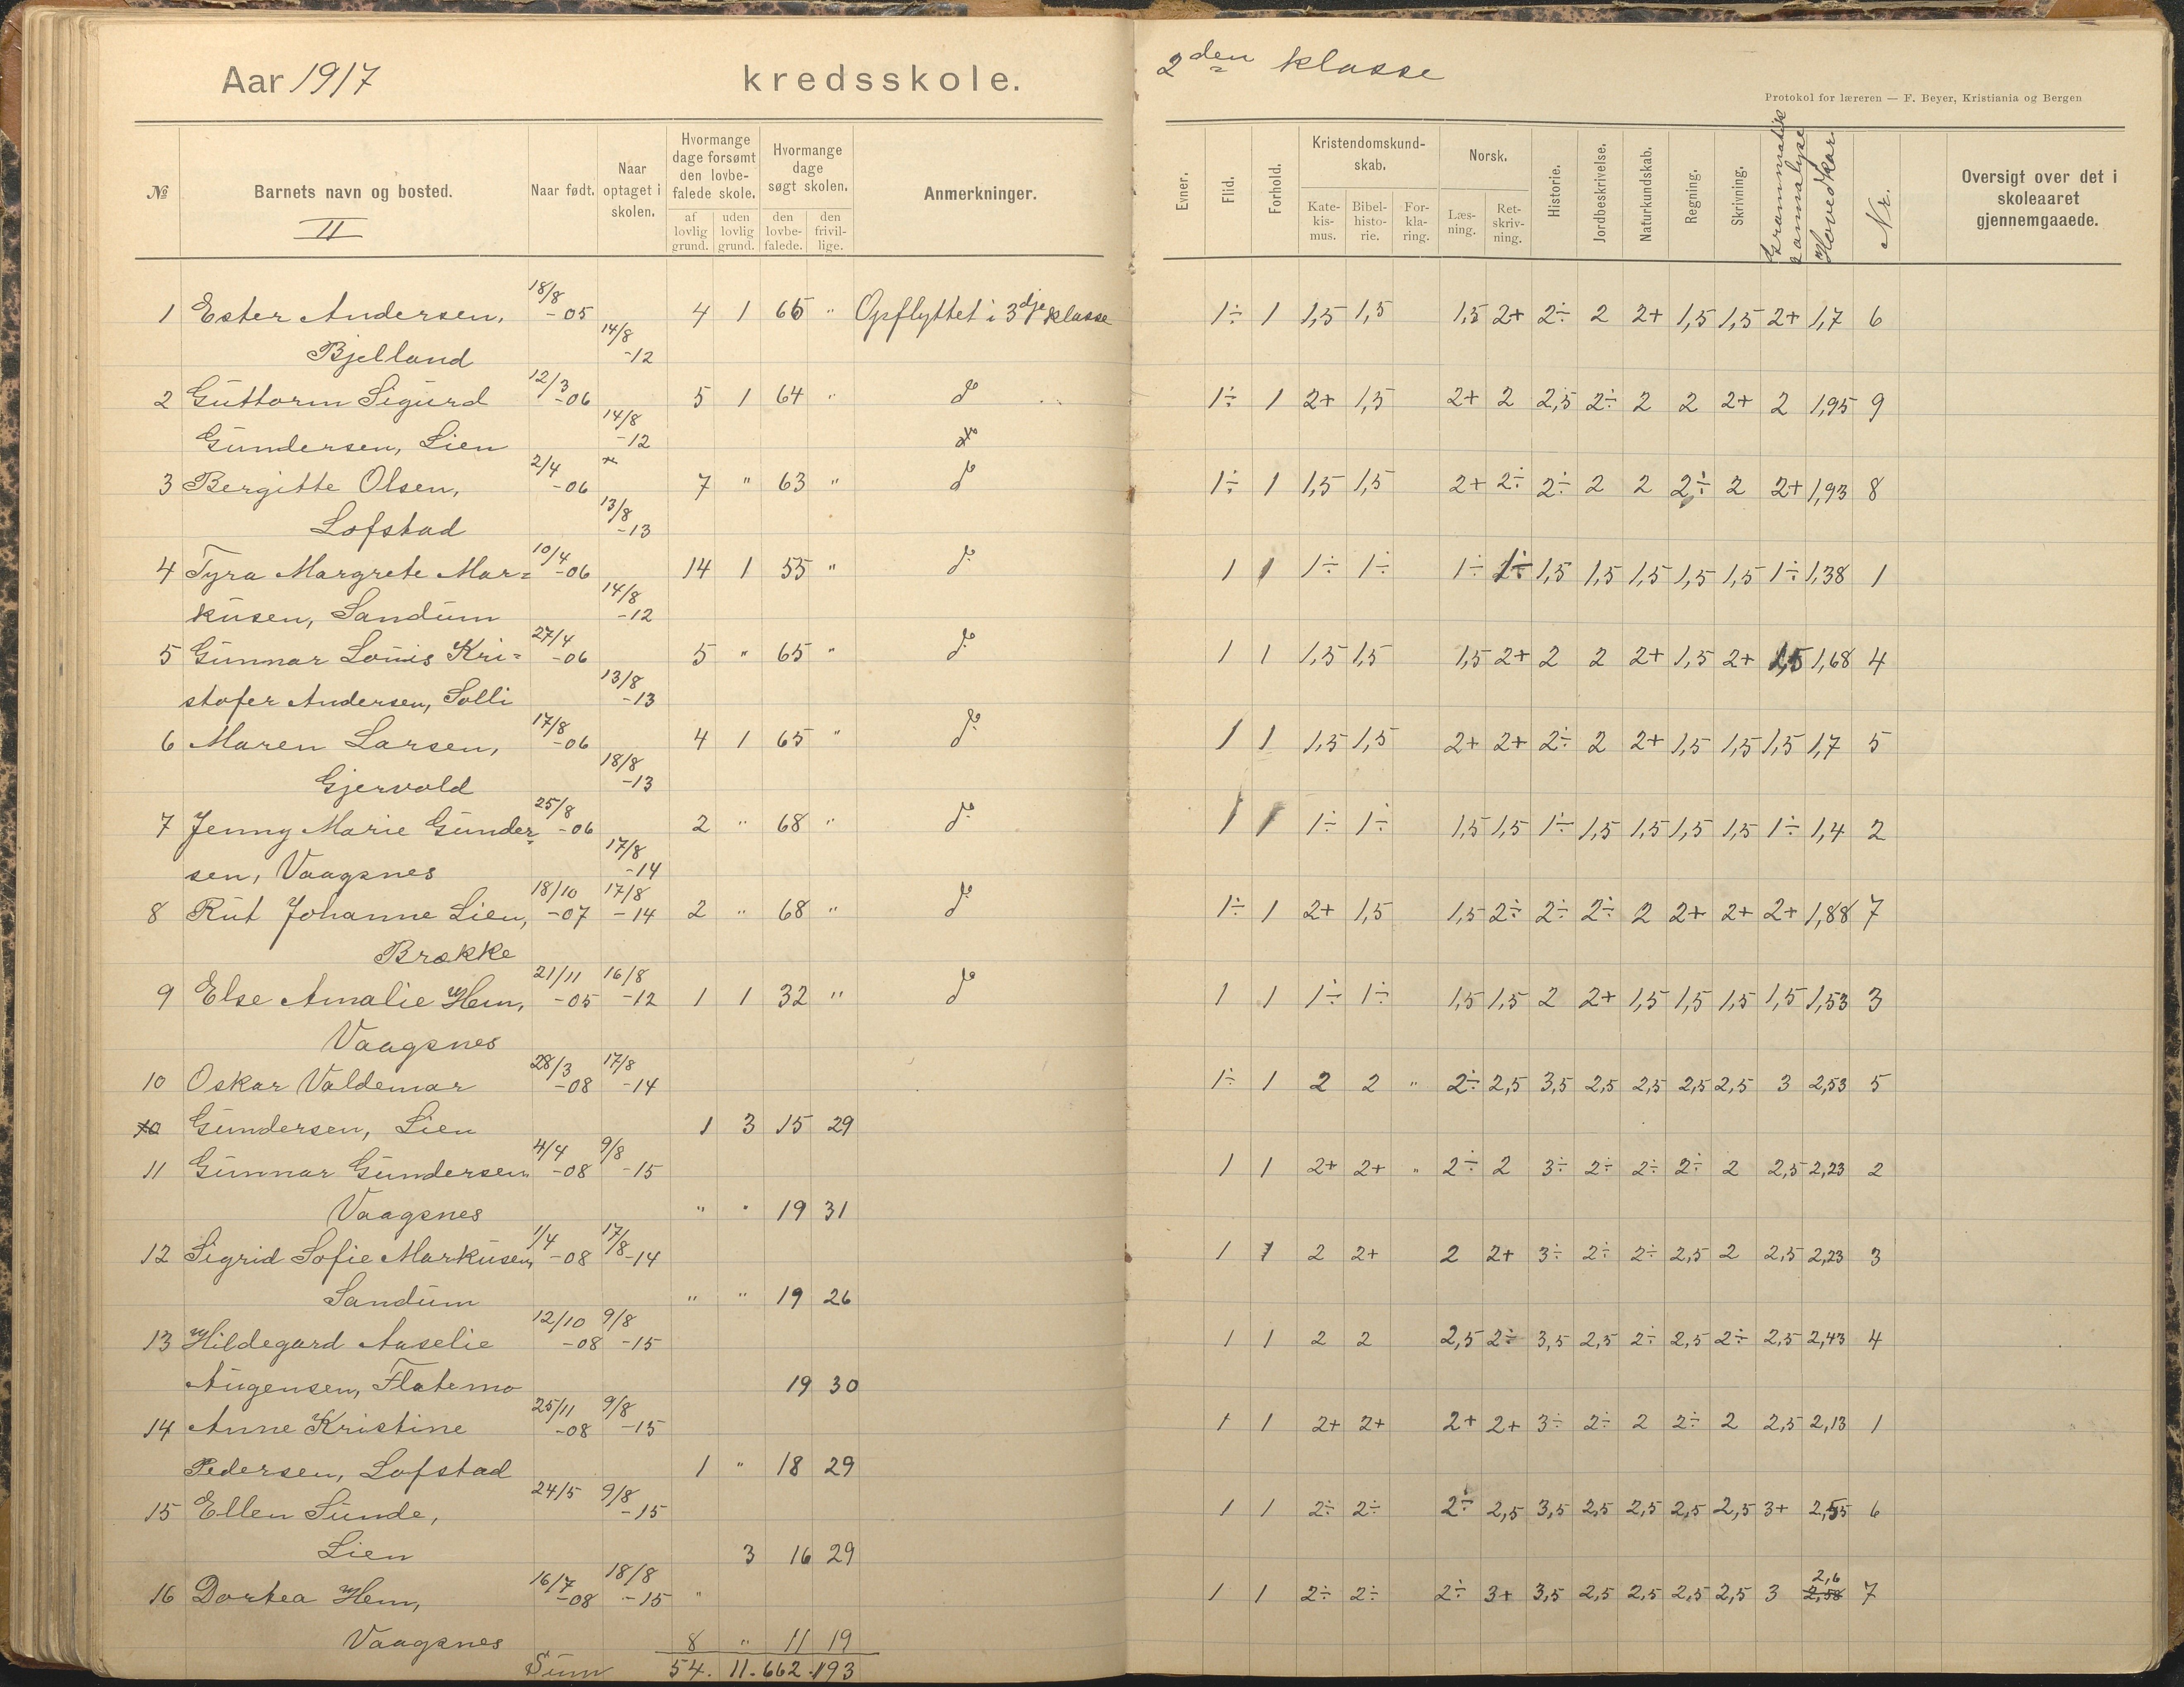 Aar 1917 kredsskole.
2den klasse
Protokol for læreren — F. Beyer, Kristiania og Bergen
№ Barnets navn og bosted. II Naar født. Naar optaget i skolen. Hvormange dage forsømt den lovbefalede skole. af lovlig grund. uden lovlig grund. Hvormange dage søgt skolen. den lovbefalede. den frivillige. Anmerkninger.
Evner. Flid. Forhold. Kristendomskundskab. Katekismus. Bibelhistorie. Forklaring. Norsk. Læsning. Retskrivning. Historie. Jordbeskrivelse. Naturkundskab. Regning. Skrivning. Grammatik & analyse Hovedkar. Nr. Oversigt over det i skoleaaret gjennemgaaede.
1 Ester Andersen, 18/8 -05 4 1 65 " Opflyttet i 3dje klasse 1÷ 1 1,5 1,5 1,5 2+ 2÷ 2 2+ 1,5 1,5 2+ 1,7 6
Bjelland 14/8 -12
2 Guttorm Sigurd 12/3 -06 5 1 64 " do 1÷ 1 2+ 1,5 2+ 2 2,5 2÷ 2 2 2+ 2 1,95 9
Gundersen, Lien 14/8 -12
3 Bergitte Olsen, 2/4 -06 7 " 63 " do 1÷ 1 1,5 1,5 2+ 2÷ 2÷ 2 2 2÷ 2 2+ 1,93 8
Lofstad 13/8 -13
4 Tyra Margrete Mar= 10/4 -06 14 1 55 " do 1 1 1÷ 1÷ 1÷ 1÷ 1,5 1,5 1,5 1,5 1,5 1÷ 1,38 1
kusen, Sandum 14/8 -12
5 Gunnar Louis Kri= 27/4 -06 5 " 65 " do 1 1 1,5 1,5 1,5 2+ 2 2 2+ 1,5 2+ 1,5 1,68 4
stofer Andersen, Solli 13/8 -13
6 Maren Larsen, 17/8 -06 4 1 65 " do 1 1 1,5 1,5 2+ 2+ 2÷ 2 2+ 1,5 1,5 1,5 1,7 5
Gjervold 18/8 -13
7 Jenny Marie Gunder= 25/8 -06 2 " 68 " do 1 1 1÷ 1÷ 1,5 1,5 1÷ 1,5 1,5 1,5 1,5 1÷ 1,4 2
sen, Vaagsnes 17/8 -14
8 Rut Johanne Lien, 18/10 -07 17/8 -14 2 " 68 " do 1÷ 1 2+ 1,5 1,5 2÷ 2÷ 2÷ 2 2+ 2+ 2+ 1,88 7
Brække
9 Else Amalie Hem, 21/11 -05 16/8 -12 1 1 32 " do 1 1 1÷ 1÷ 1,5 1,5 2 2+ 1,5 1,5 1,5 1,5 1,53 3
Vaagsnes
10 Oskar Valdemar 28/3 -08 17/8 -14 1÷ 1 2 2 " 2÷ 2,5 3,5 2,5 2,5 2,5 2,5 3 2,53 5
Gundersen, Lien 1 3 15 29
11 Gunnar Gundersen 4/4 -08 9/8 -15 1 1 2+ 2+ " 2÷ 2 3÷ 2÷ 2÷ 2÷ 2 2,5 2,23 2
Vaagsnes " " 19 31
12 Sigrid Sofie Markusen, 1/4 -08 17/8 -14 1 1 2 2+ 2 2+ 3÷ 2÷ 2÷ 2,5 2 2,5 2,23 3
Sandum " " 19 26
13 Hildegard Aaselie 12/10 -08 9/8 -15 1 1 2 2 2,5 2÷ 3,5 2,5 2÷ 2,5 2÷ 2,5 2,43 4
Augensen, Flatemo 19 30
14 Anne Kristine 25/11 -08 9/8 -15 1 1 2+ 2+ 2+ 2+ 3÷ 2÷ 2 2÷ 2 2,5 2,13 1
Pedersen, Lofstad 1 " 18 29
15 Ellen Sunde, 24/5 9/8 -15 1 1 2÷ 2÷ 2÷ 2,5 3,5 2,5 2,5 2,5 2,5 3+ 2,55 6
Lien 3 16 29
16 Dortea Hem, 16/7 -08 18/8 -15 " 1 1 2÷ 2÷ 2÷ 3+ 3,5 2,5 2,5 2,5 2,5 3 2,58 2,6 7
Vaagsnes 8 " 11 19
Sum 54. 11. 662. 193